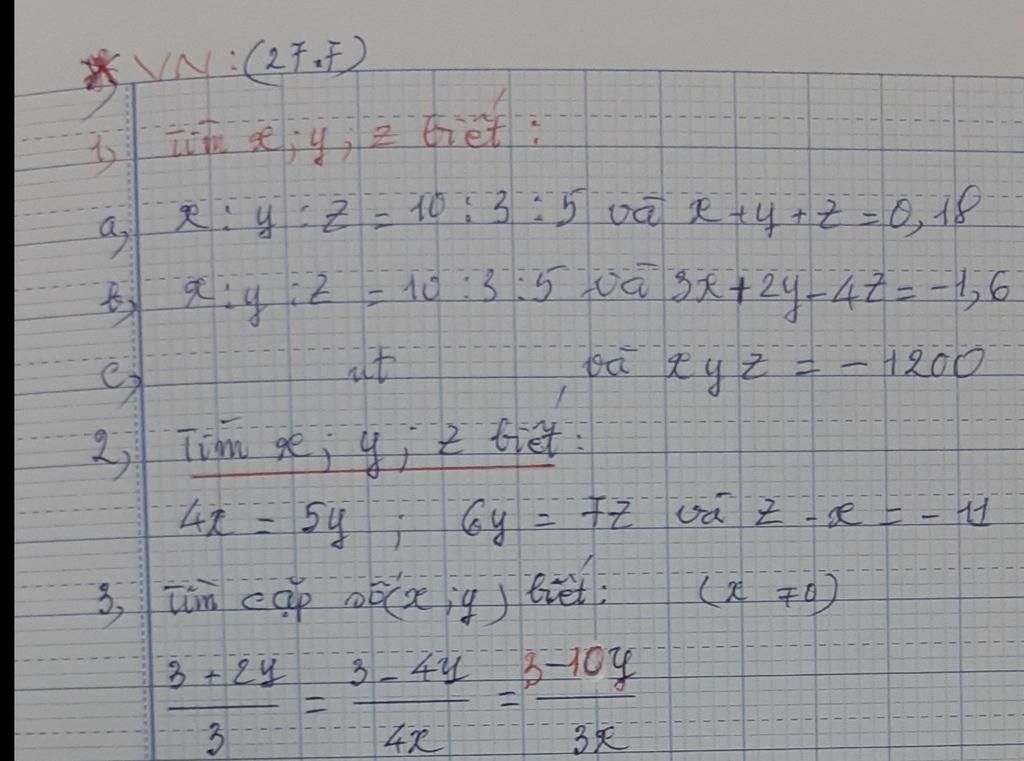 * VN : (27.7)
1, Tìm x ; y ; z biết :
a, x : y : z = 10 : 3 : 5 và x + y + z = 0,18
b, x : y : z = 10 : 3 : 5 và 3x + 2y - 4z = -1,6
c, nt và x y z = - 1200
2, Tìm x ; y ; z biết :
4x = 5y ; 6y = 7z và z - x = - 11
3, Tìm cặp số (x ; y) biết : (x ≠ 0)
\frac{3 + 2y}{3} = \frac{3 - 4y}{4x} = \frac{3 - 10y}{3x}